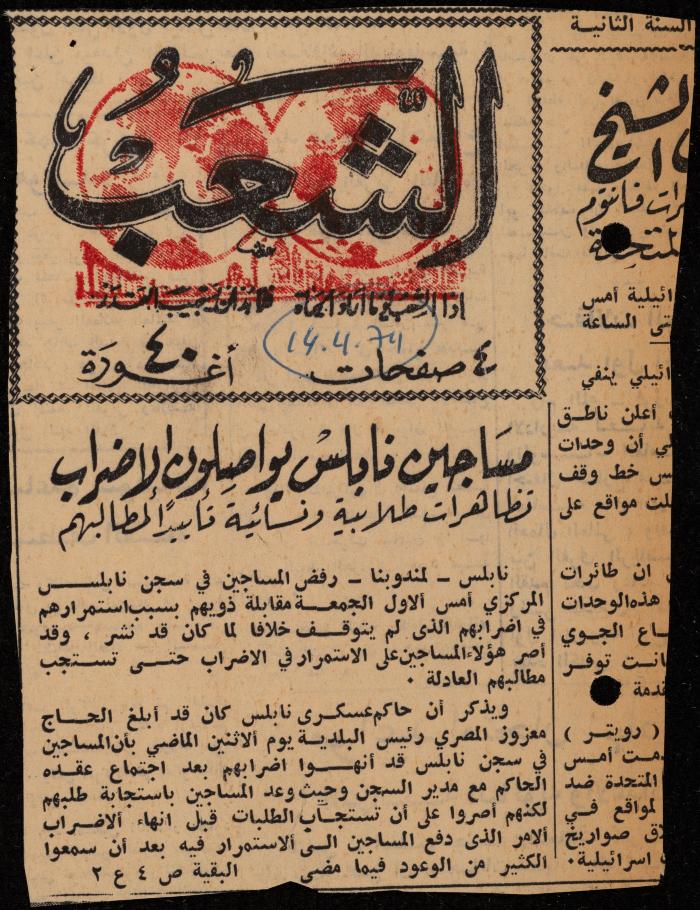 السنة الثانية
الشعب
اذا الشعب يوما اراد الحياة فلا بد ان يستجيب القدر
14.4.74
٤ صفحات ٤٠ أغورة
مساجين نابلس يواصلون الاضراب
تظاهرات طلابية ونسائية تأييداً لمطالبهم
نابلس ــ لمندوبنا ــ رفض المساجين في سجن نابلس
المركزي أمس الاول الجمعة مقابلة ذويهم بسبب استمرارهم
في اضرابهم الذى لم يتوقف خلافا لما كان قد نشر ، وقد
أصر هؤلاء المساجين على الاستمرار في الاضراب حتى تستجب
مطالبهم العادلة ٠
ويذكر أن حاكم عسكرى نابلس كان قد أبلغ الحاج
معزوز المصري رئيس البلدية يوم ألاثنين الماضي بأن المساجين
في سجن نابلس قد أنهوا اضرابهم بعد اجتماع عقده
الحاكم مع مدير السجن وحيث وعد المساجين باستجابة طلبهم
لكنهم أصروا على أن تستجاب الطلبات قبل انهاء ألاضراب
ألامر الذى دفع المساجين الى ألاستمرار فيه بعد أن سمعوا
الكثير من الوعود فيما مضى
البقية ص ٤ ع ٢
الشيخ
رات فانتوم
المتحدة
ائيلية أمس
تى الساعة
ائيلي ينفي
أعلن ناطق
ي أن وحدات
س خط وقف
لت مواقع على
ان طائرات
هذه الوحدات
اع الجوي
انت توفر
قدمة
( رويتر )
دمت أمس
المتحدة ضد
لمواقع في
لاق صواريخ
اسرائيلية ٠